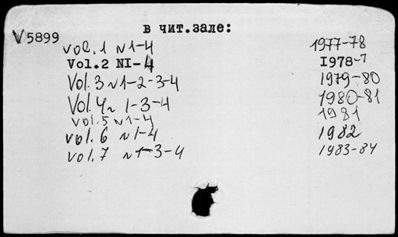 в чит.зале:
V5899
vol.1 N1-4 1977-78
Vol.2 NI-4 I978-7
Vol.3 N1-2-3-4 1979-80
Vol.4 N 1-3-4 1980-81
vol.5 N1-4 1981
vol.6 N1-4 1982
vol.7 N1-3-4 1983-84